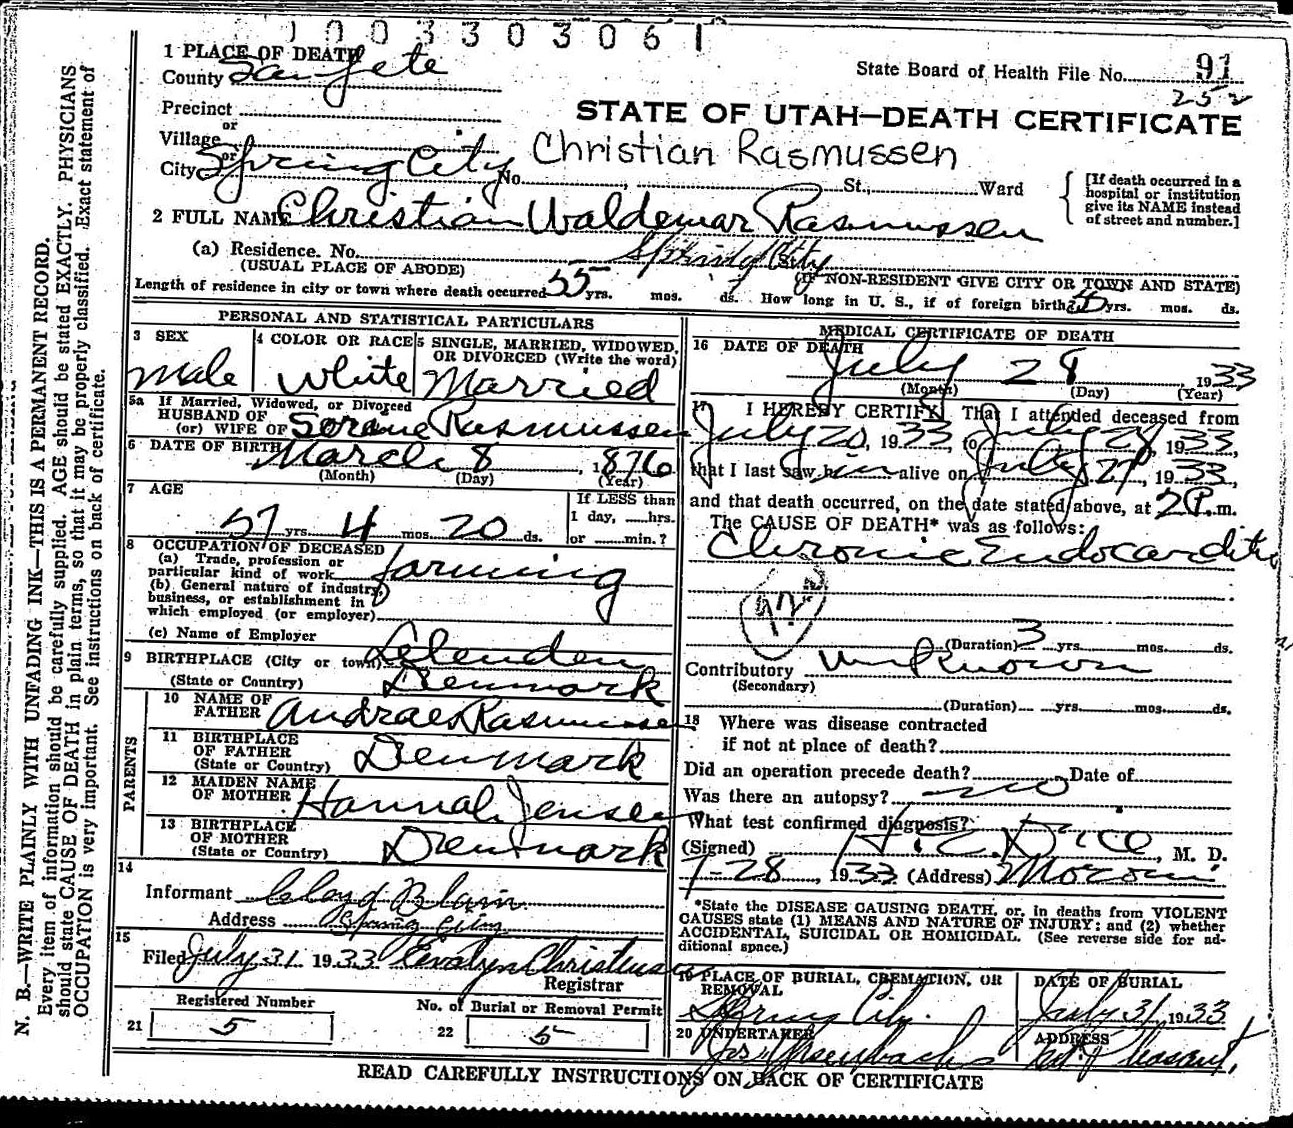 1003303061
1 PLACE OF DEATH
State Board of Health File No. 91
County Sanpete
252
Precinct
STATE OF UTAH—DEATH CERTIFICATE
or
Village
or
City Spring City No. St., Ward
Christian Rasmussen
[If death occurred in a
hospital or institution
give its NAME instead
of street and number.]
2 FULL NAME Christian Waldemar Rasmussen
(a) Residence. No. Spring City
(USUAL PLACE OF ABODE) (IF NON-RESIDENT GIVE CITY OR TOWN AND STATE)
Length of residence in city or town where death occurred 55 yrs. mos. ds. How long in U. S., if of foreign birth? yrs. mos. ds.
PERSONAL AND STATISTICAL PARTICULARS
3 SEX
Male
4 COLOR OR RACE
White
5 SINGLE, MARRIED, WIDOWED,
OR DIVORCED (Write the word)
Married
5a If Married, Widowed, or Divorced
HUSBAND OF
(or) WIFE OF Rasmussen
6 DATE OF BIRTH March 8, 1876
(Month) (Day) (Year)
7 AGE
57 yrs. 4 mos. 20 ds.
If LESS than
1 day, ......hrs.
or ......min.?
8 OCCUPATION OF DECEASED
(a) Trade, profession or
particular kind of work farming
(b) General nature of industry,
business, or establishment in
which employed (or employer)
(c) Name of Employer
9 BIRTHPLACE (City or town)
(State or Country) Denmark
PARENTS
10 NAME OF
FATHER Andraes Rasmussen
11 BIRTHPLACE
OF FATHER
(State or Country) Denmark
12 MAIDEN NAME
OF MOTHER Hannah Jensen
13 BIRTHPLACE
OF MOTHER
(State or Country) Denmark
14
Informant Lloyd Blain
Address Spring City
15
Filed July 31 1933 Evalyn Christensen
Registrar
Registered Number
21 5
No. of Burial or Removal Permit
22 5
MEDICAL CERTIFICATE OF DEATH
16 DATE OF DEATH
July 28, 1933
(Month) (Day) (Year)
17 I HEREBY CERTIFY, That I attended deceased from
July 20, 1933, to July 28, 1933,
that I last saw him alive on July 27, 1933,
and that death occurred, on the date stated above, at 2 P.m.
The CAUSE OF DEATH* was as follows:
Chronic Endocarditis
92
(Duration) 3 yrs. mos. ds.
Contributory unknown
(Secondary)
(Duration) yrs. mos. ds.
18 Where was disease contracted
if not at place of death?
Did an operation precede death? Date of
Was there an autopsy? no
What test confirmed diagnosis?
(Signed) H. C. Dice, M. D.
7-28, 1933 (Address) Moroni
*State the DISEASE CAUSING DEATH, or, in deaths from VIOLENT
CAUSES state (1) MEANS AND NATURE OF INJURY; and (2) whether
ACCIDENTAL, SUICIDAL OR HOMICIDAL. (See reverse side for ad-
ditional space.)
19 PLACE OF BURIAL, CREMATION, OR
REMOVAL
Spring City.
DATE OF BURIAL
July 31, 1933
20 UNDERTAKER
ADDRESS
Mt. Pleasant,
READ CAREFULLY INSTRUCTIONS ON BACK OF CERTIFICATE
N. B.—WRITE PLAINLY WITH UNFADING INK—THIS IS A PERMANENT RECORD.
Every item of information should be carefully supplied. AGE should be stated EXACTLY. PHYSICIANS
should state CAUSE OF DEATH in plain terms, so that it may be properly classified. Exact statement of
OCCUPATION is very important. See instructions on back of certificate.